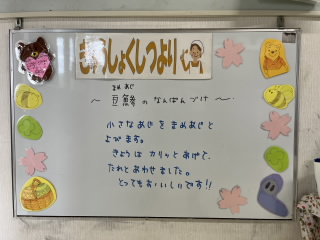 きゅうしょくしつより
まめ あじ
～ 豆鯵の なんばんづけ ～
小さなあじを まめあじと
よびます。
きょうは カリッと あげて、
たれと あわせました。
とっても おいしいです!!